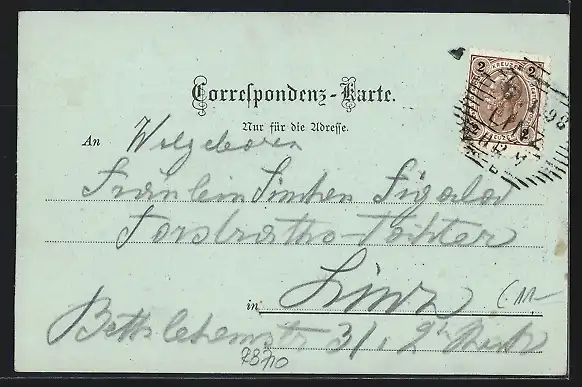 Correspondenz-Karte.
Nur für die Adresse.
2 KREUZER 2
2
98
An Wolgeboren
Fräulein
Forstraths-Tochter
in Linz
Bethlehemstr 31, 2t Stock
78710